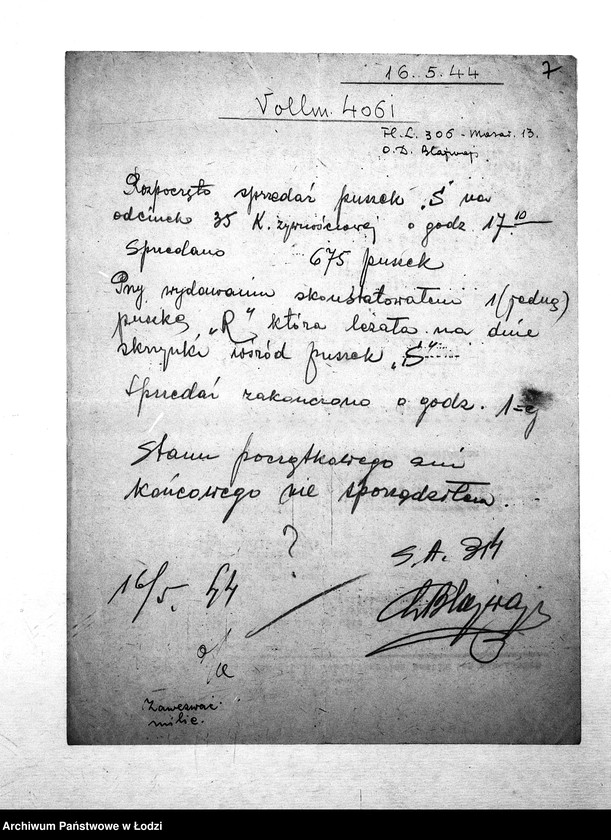 16.5.44 7
Vollm. 4061
Fl. L. 306 - Marar. 13.
O.D. Błajwajs.
Rozpoczęto sprzedaż puszek "S" na
odcinek 35 K. żywnościowej o godz. 17.10
Sprzedano 675 puszek
Przy wydawaniu skonstatowałem 1 (jedną)
puszkę "R" która leżała na dnie
skrzynki wśród puszek "S"
Sprzedaż zakończono o godz. 1=ej
Stanu początkowego ani
końcowego nie sporządziłem.
?
S.A. 314
16/5. 44
Ch Błajwajs
Zawezwać